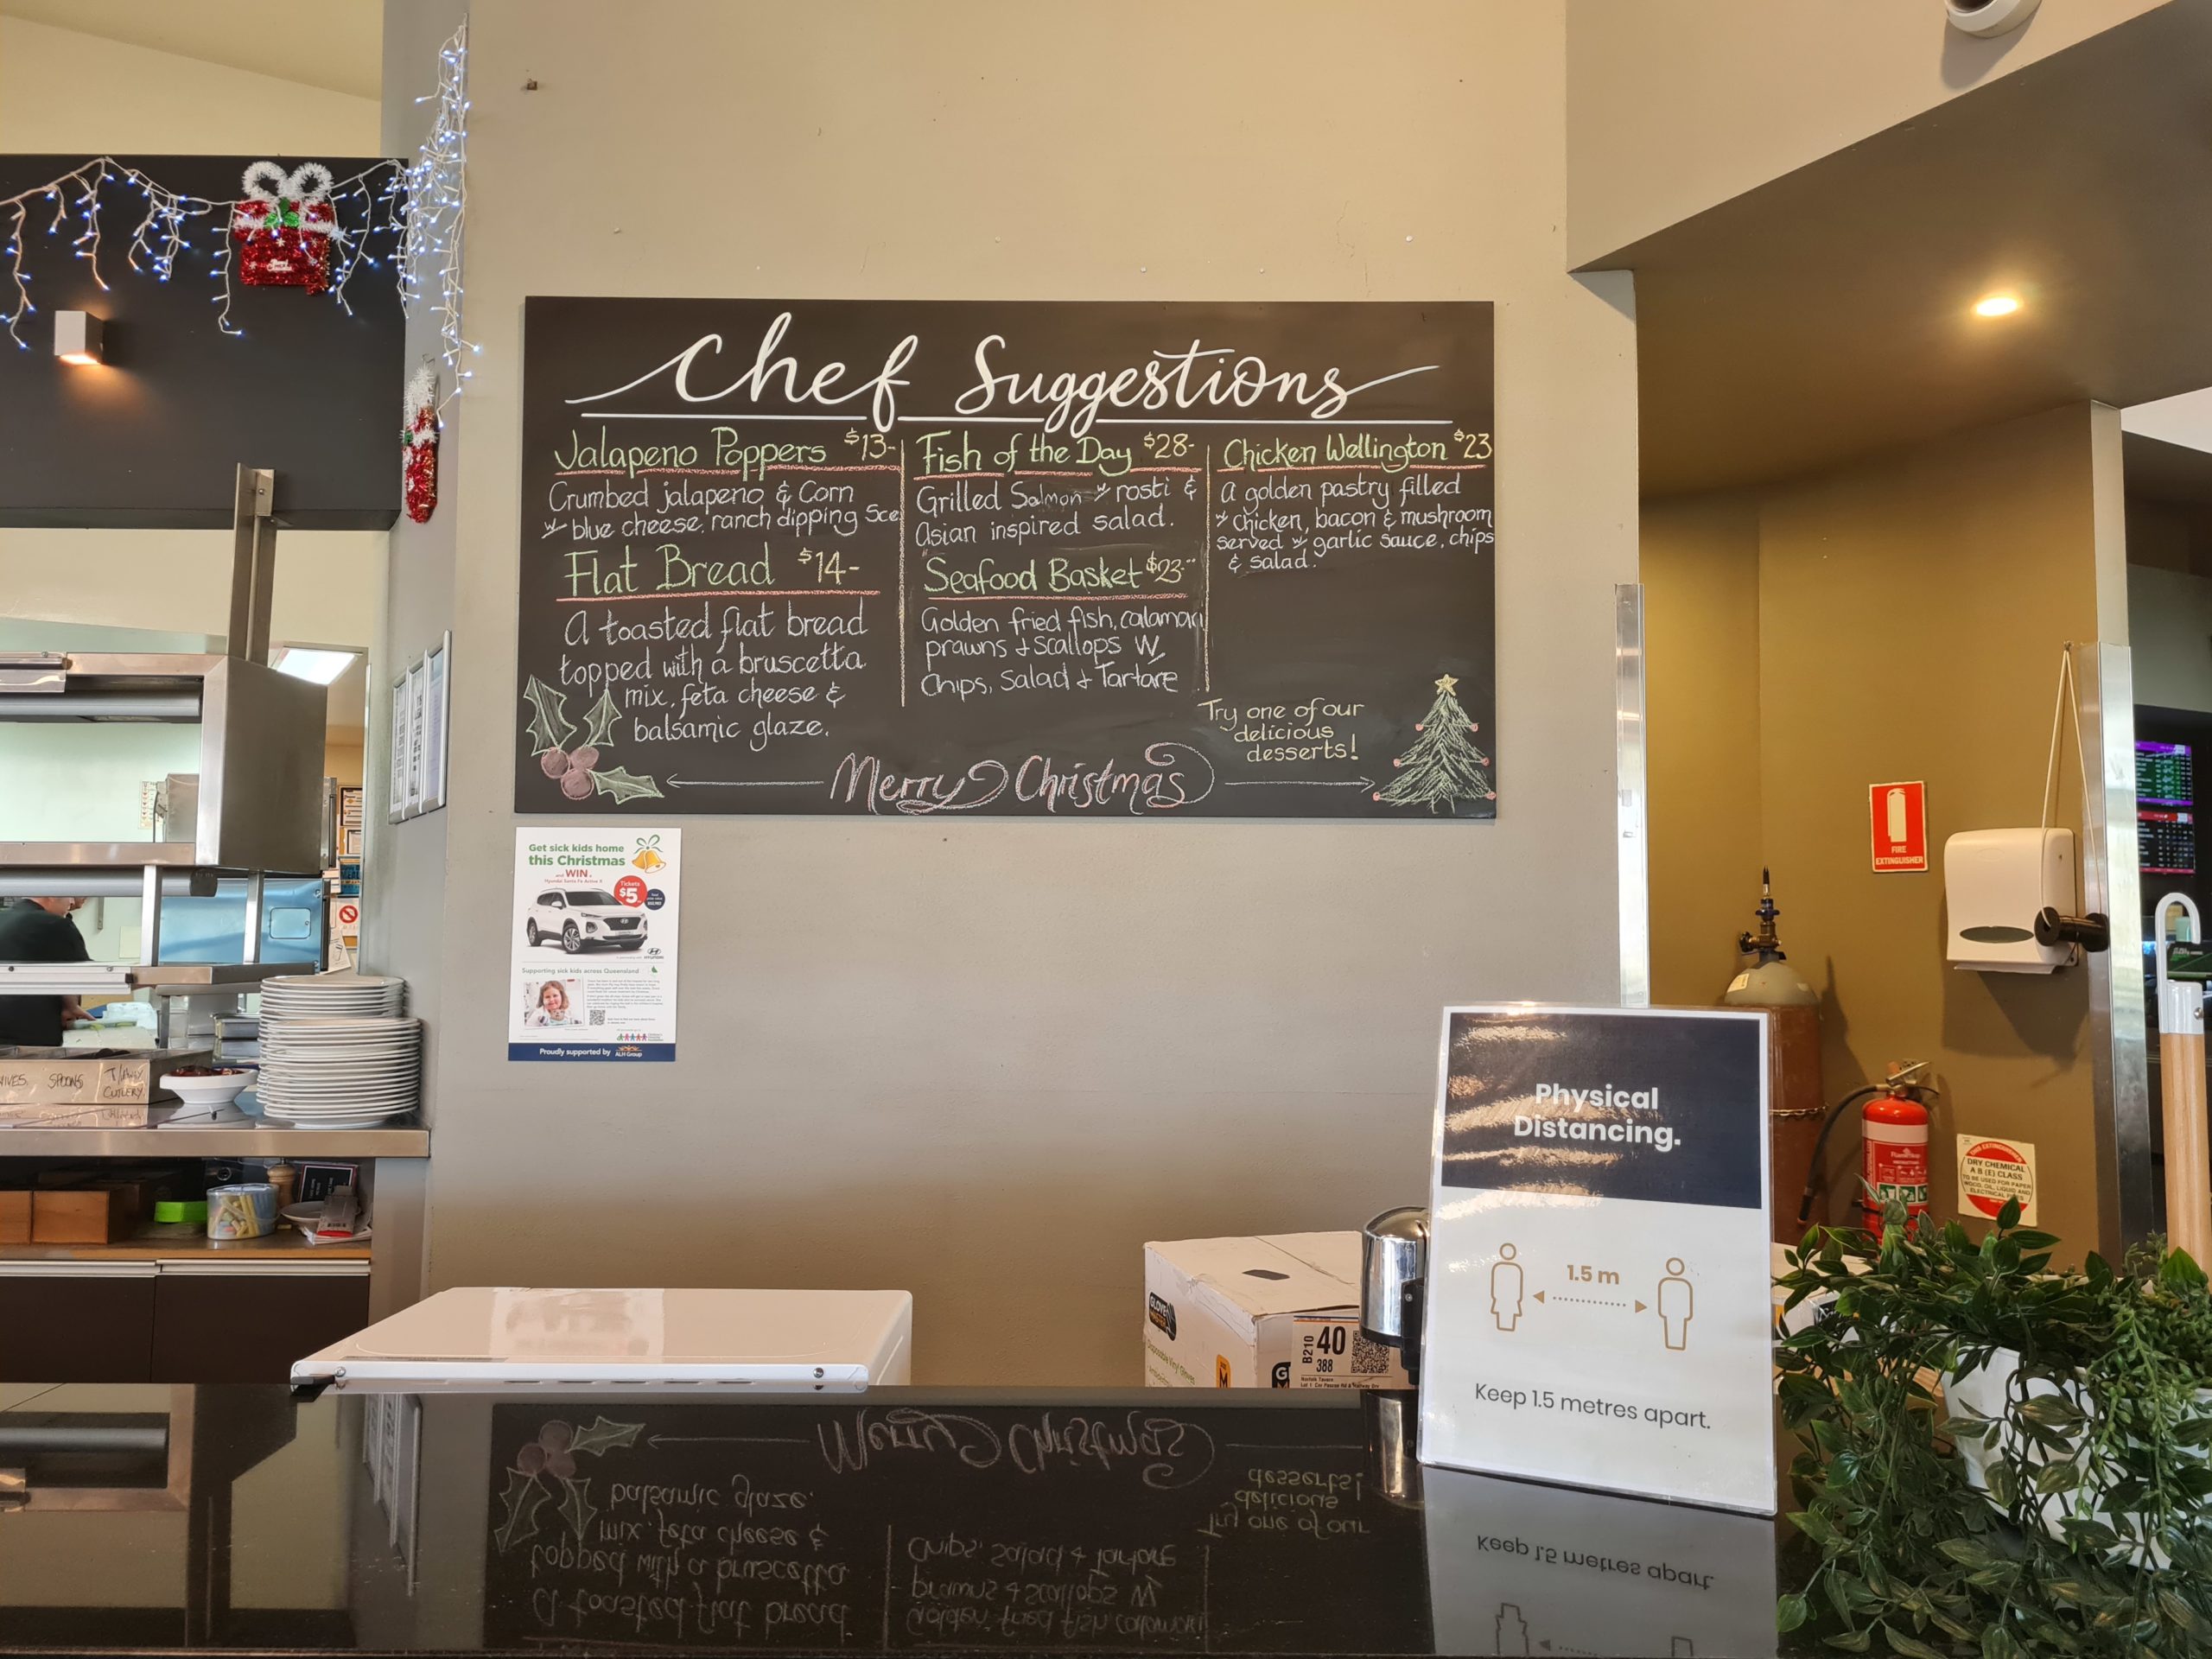 Chef Suggestions
Jalapeno Poppers $13-
Crumbed jalapeno & Corn
w blue cheese. ranch dipping Sce
Flat Bread $14-
A toasted flat bread
topped with a bruscetta
mix, feta cheese &
balsamic glaze.
Fish of the Day $28-
Grilled Salmon w rosti &
Asian inspired salad.
Seafood Basket $23-
Golden fried fish, calamari
prawns & Scallops W
Chips, Salad & Tartare
Chicken Wellington $23
A golden pastry filled
w chicken, bacon & mushroom
served w garlic sauce, chips
& salad.
Try one of our
delicious
desserts!
Merry Christmas
Get sick kids home
this Christmas
and WIN
Tickets
$5
HYUNDAI
Supporting sick kids across Queensland
Proudly supported by ALH Group
SPOONS
T/AWAY
CUTLERY
FIRE
EXTINGUISHER
DRY CHEMICAL
A B (E) CLASS
TO BE USED FOR PAPER
WOOD, OIL, LIQUID AND
Physical
Distancing.
1.5 m
Keep 1.5 metres apart.
GLOVE
B210
40
388